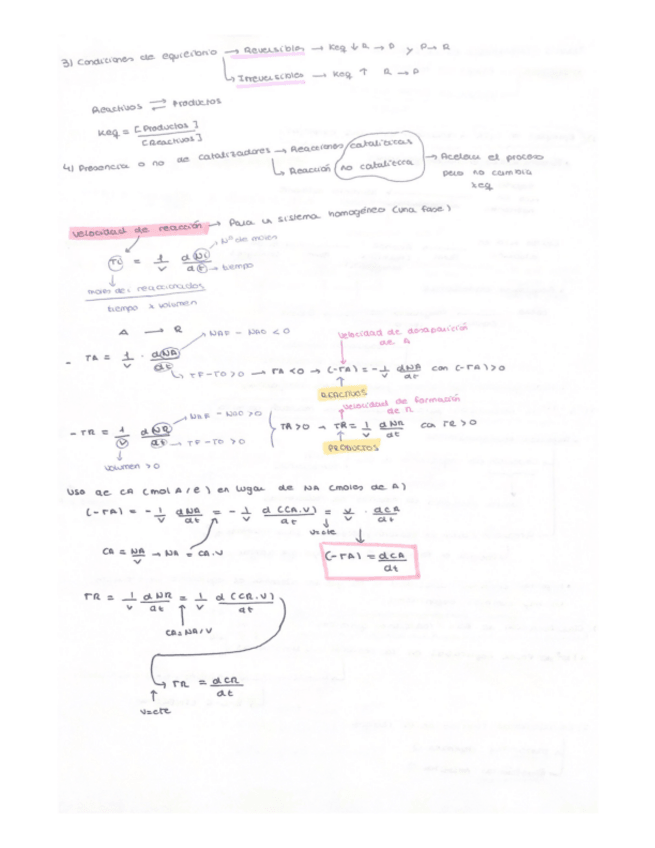 3) Condiciones de equilibrio → Reversibles → Keq ↓ R → P y P → R
↳ Irreversibles → Keq ↑ R → P
Reactivos ⇌ Productos
Keq = [Productos] / [Reactivos]
4) Presencia o no de catalizadores → Reacciones catalíticas
↳ Reacción no catalítica → Aceleran el proceso
pero no cambia
Keq
Velocidad de reacción → Para un sistema homogéneo (una fase)
Nº de moles
ri = 1/V dNi/dt → tiempo
moles de i reaccionados / tiempo x volumen
A → R
NAF - NA0 < 0
velocidad de desaparición
de A
- rA = 1/V · dNA/dt
↳ TF - T0 > 0 → rA < 0 → (-rA) = - 1/V dNA/dt con (-rA) > 0
REACTIVOS
velocidad de formación
de R
- rR = 1/V dNR/dt
→ NRF - NR0 > 0
→ TF - T0 > 0
rR > 0 → rR = 1/V dNR/dt con rR > 0
PRODUCTOS
volumen > 0
Uso de CA (mol A/l) en lugar de NA (moles de A)
(-rA) = - 1/V dNA/dt = - 1/V d(CA.V)/dt = V/V · dCA/dt
V=cte
CA = NA/V → NA = CA.V
(-rA) = dCA/dt
rR = 1/V dNR/dt = 1/V d(CR.V)/dt
CR = NR/V
↳ rR = dCR/dt
V=cte